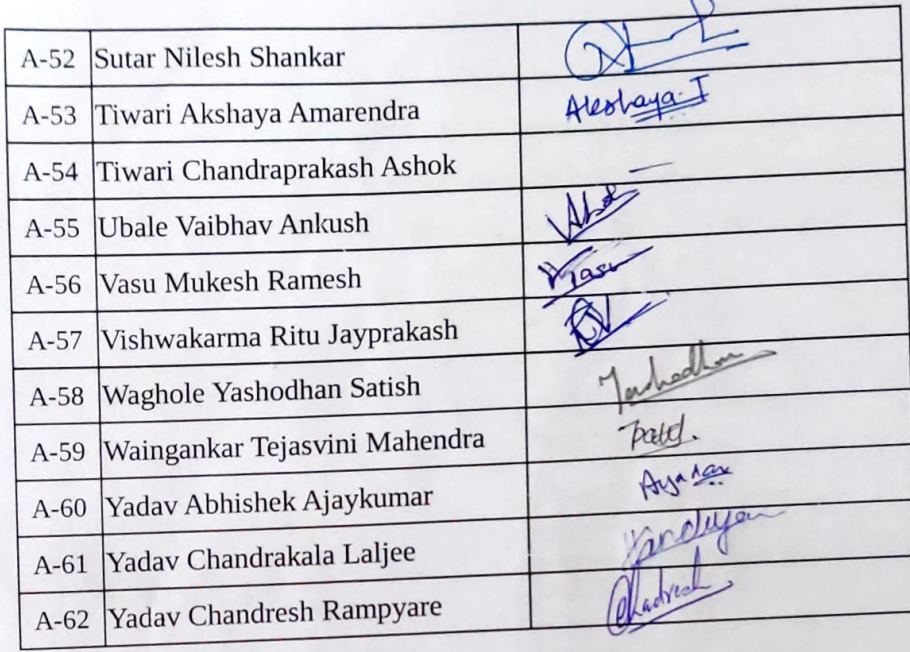 A-52 Sutar Nilesh Shankar
A-53 Tiwari Akshaya Amarendra Akshaya-T
A-54 Tiwari Chandraprakash Ashok —
A-55 Ubale Vaibhav Ankush
A-56 Vasu Mukesh Ramesh Vasu
A-57 Vishwakarma Ritu Jayprakash
A-58 Waghole Yashodhan Satish Yashodhan
A-59 Waingankar Tejasvini Mahendra
A-60 Yadav Abhishek Ajaykumar
A-61 Yadav Chandrakala Laljee
A-62 Yadav Chandresh Rampyare